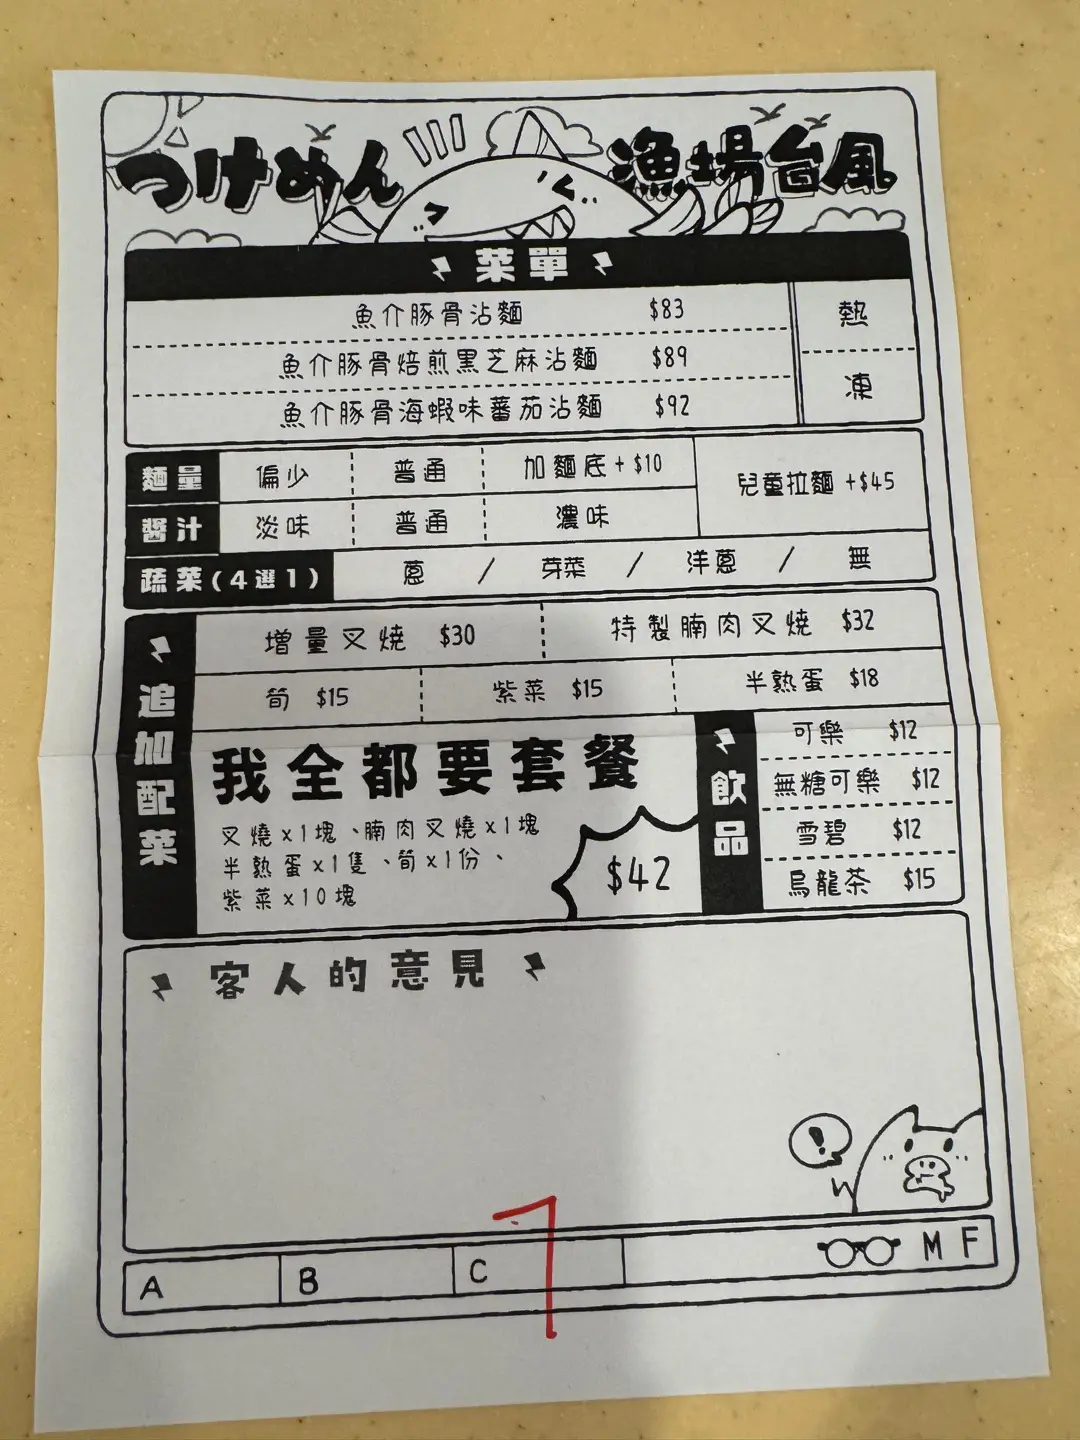 つけめん 漁場台風
菜單
魚介豚骨沾麵 $83
魚介豚骨焙煎黑芝麻沾麵 $89
魚介豚骨海蝦味蕃茄沾麵 $92
熱
凍
麵量 偏少 普通 加麵底+$10
兒童拉麵 +$45
醬汁 淡味 普通 濃味
蔬菜(4選1) 蔥 / 芽菜 / 洋蔥 / 無
追加配菜
增量叉燒 $30 特製腩肉叉燒 $32
筍 $15 紫菜 $15 半熟蛋 $18
我全都要套餐
叉燒x1塊、腩肉叉燒x1塊
半熟蛋x1隻、筍x1份、
紫菜x10塊
$42
飲品
可樂 $12
無糖可樂 $12
雪碧 $12
烏龍茶 $15
客人的意見
!
A B C M F
1